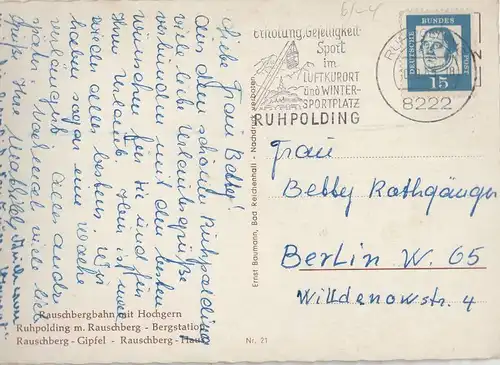 Liebe Frau Betty!
Aus dem schönen Ruhpolding
viele liebe Urlaubsgrüße
verbunden mit den besten
Wünschen für Sie und für
Ihren Urlaub. Hier ist
wieder alles bestens. Wir
haben sogar eine Woche
verlängert. Alles andre
viele lie
Grüße Ihre
Erholung, Geselligkeit
Sport
im
LUFTKURORT
und WINTER-
SPORTPLATZ
RUHPOLDING
8222
DEUTSCHE BUNDESPOST
15
Frau
Betty Rathgänger
Berlin W. 65
Willdenowstr. 4
Ernst Baumann, Bad Reichenhall - Nachdruck verboten
Rauschbergbahn mit Hochgern
Ruhpolding m. Rauschberg - Bergstation
Rauschberg - Gipfel - Rauschberg - Haus
Nr. 21